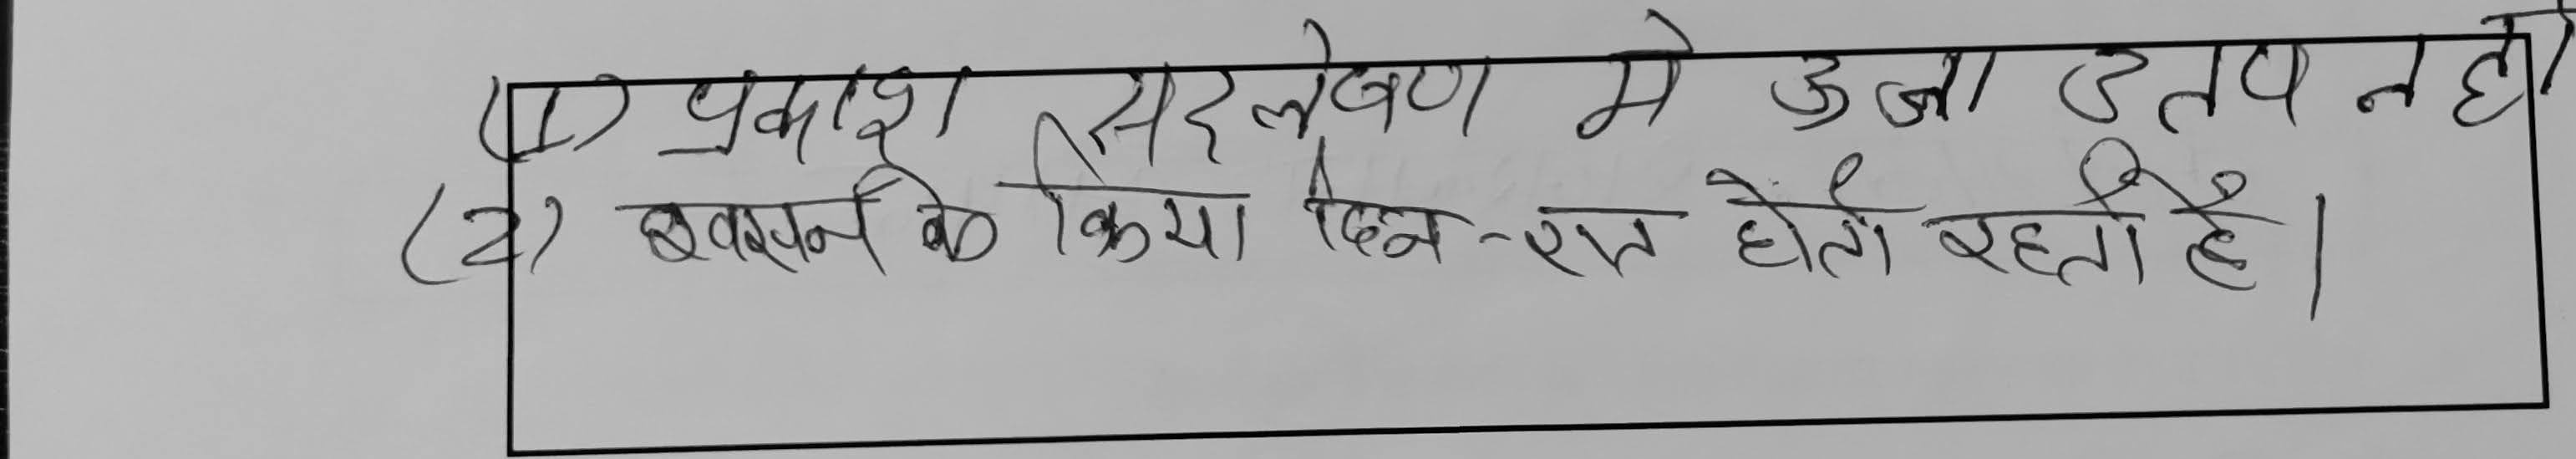 (1) प्रकाश सरलेषण मे उजा उतप न हो
(2) श्वसन के क्रिया दिन-रात होती रहती है।